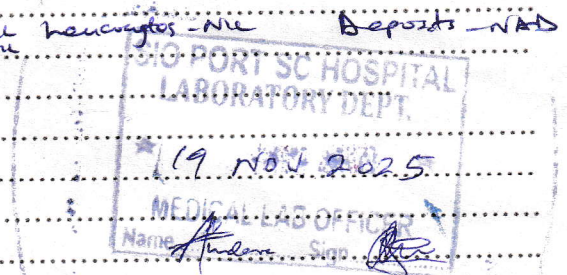 Leucocytes - Nil Deposits - NAD
SIO PORT SC HOSPITAL
LABORATORY DEPT.
19 NOV 2025
MEDICAL LAB OFFICER
Name Sign